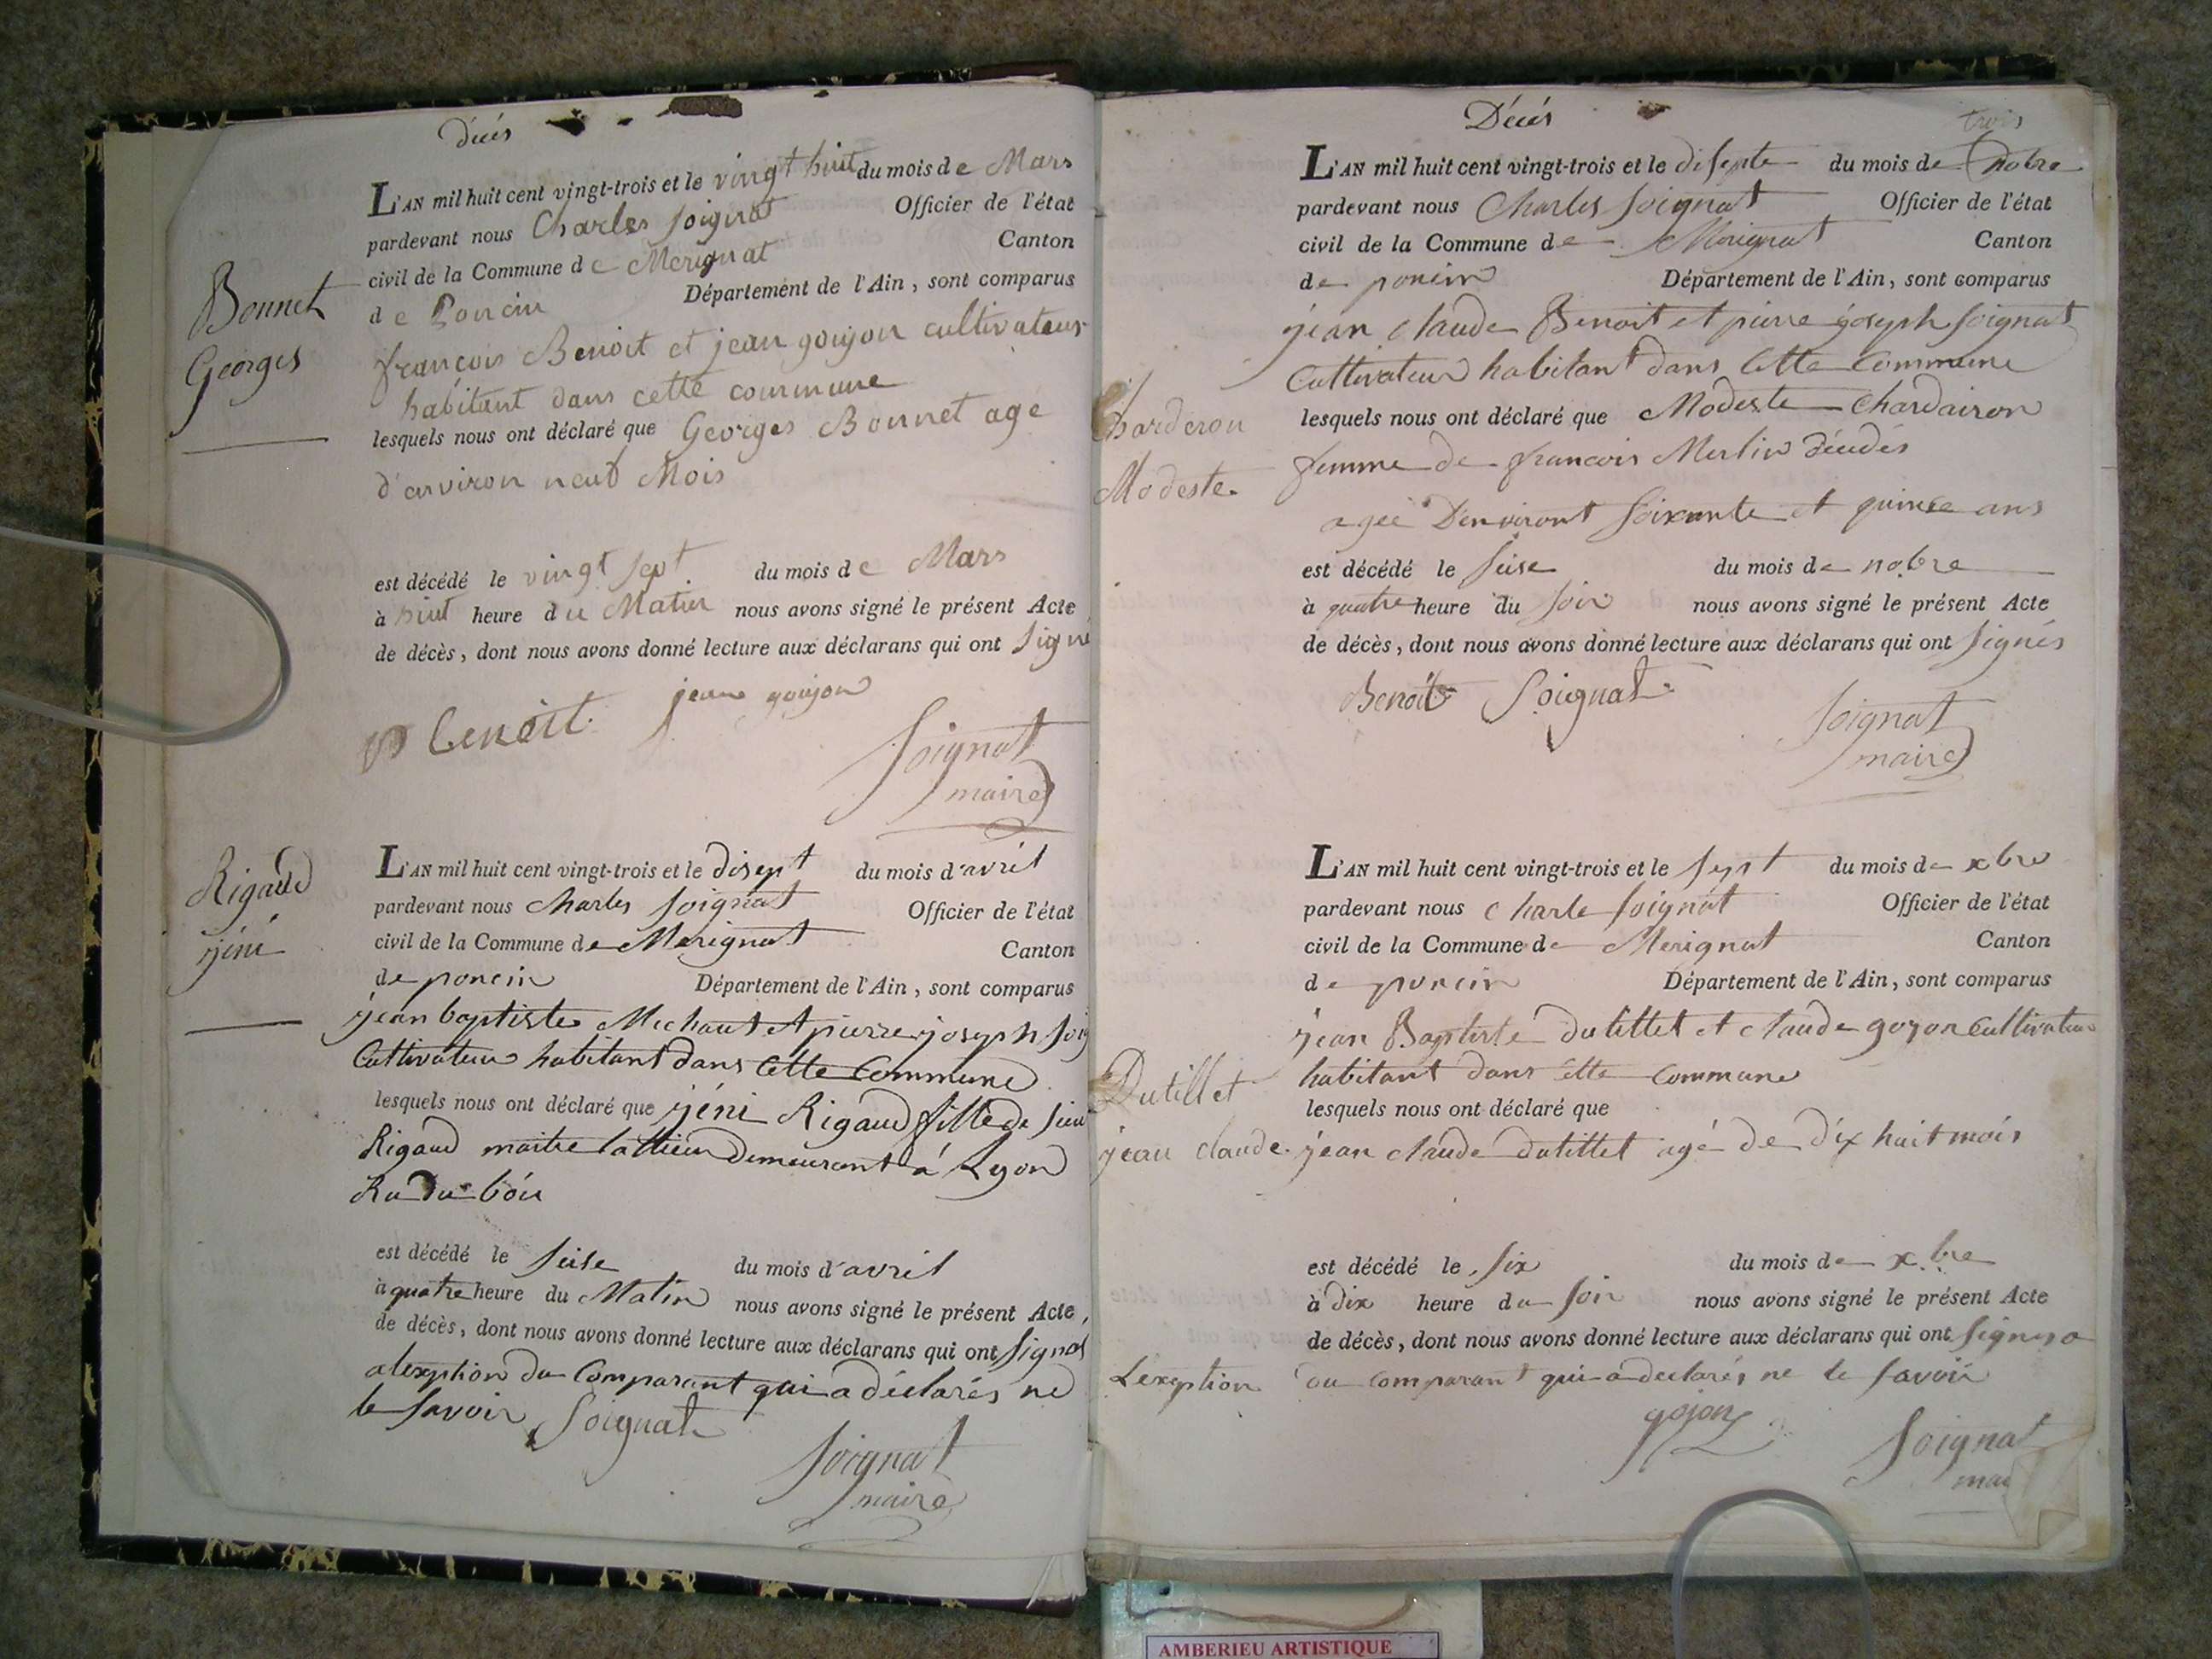 décés
Bonnet
Georges
L'AN mil huit cent vingt-trois et le vingt huit du mois de Mars
pardevant nous Charles Soignat Officier de l'état
civil de la Commune de Merignat Canton
de Poncin Département de l'Ain, sont comparus
françois Benoit et jean goujon cultivateur
habitant dans cette commune
lesquels nous ont déclaré que Georges Bonnet age
d'anviron neuf Mois
est décédé le vingt sept du mois de Mars
à huit heure du Matin nous avons signé le présent Acte
de décès, dont nous avons donné lecture aux déclarans qui ont signé
benoit jean goujon
Soignat
maire
Rigaud
jéni
L'AN mil huit cent vingt-trois et le disept du mois d'avril
pardevant nous Charles Soignat Officier de l'état
civil de la Commune de Merignat Canton
de poncin Département de l'Ain, sont comparus
jean baptiste Michaut et pierre joseph soig
Cultivateur habitant dans Cette Commune
lesquels nous ont déclaré que jéni Rigaud fille de
Rigaud maitre demeurant à Lyon
Ru du bói
est décédé le seise du mois d'avril
à quatre heure du Matin nous avons signé le présent Acte,
de décès, dont nous avons donné lecture aux déclarans qui ont signes
alexption du Comparant qui a déclarés ne
le savoir Soignat
Soignat
maire
Décés
trois
Charderon
Modeste
L'AN mil huit cent vingt-trois et le disepte du mois de nobre
pardevant nous Charles Soignat Officier de l'état
civil de la Commune de Merignat Canton
de poncin Département de l'Ain, sont comparus
jean claude Benoit et pierre joseph soignat
Cultivateur habitant dans Cette Commune
lesquels nous ont déclaré que Modeste Chardairon
femme de francois Merlin décédés
agée D'environt soixante et quinse ans
est décédé le seise du mois de nobre
à quatre heure du soir nous avons signé le présent Acte
de décès, dont nous avons donné lecture aux déclarans qui ont signés
Benoit Soignat
Soignat
maire
Dutillet
jean claude
L'AN mil huit cent vingt-trois et le sept du mois de xbre
pardevant nous charle soignat Officier de l'état
civil de la Commune de Merignat Canton
de poncin Département de l'Ain, sont comparus
jean Baptiste dutillet et claude goyon Cultivateur
habitant dans cette Commune
lesquels nous ont déclaré que
jean claude dutillet agé de dix huit mois
est décédé le six du mois de xbre
à dix heure du soir nous avons signé le présent Acte
de décès, dont nous avons donné lecture aux déclarans qui ont signes a
Lexeption du comparant qui a declarés ne le savoir
gojon
Soignat
mai
AMBERIEU ARTISTIQUE